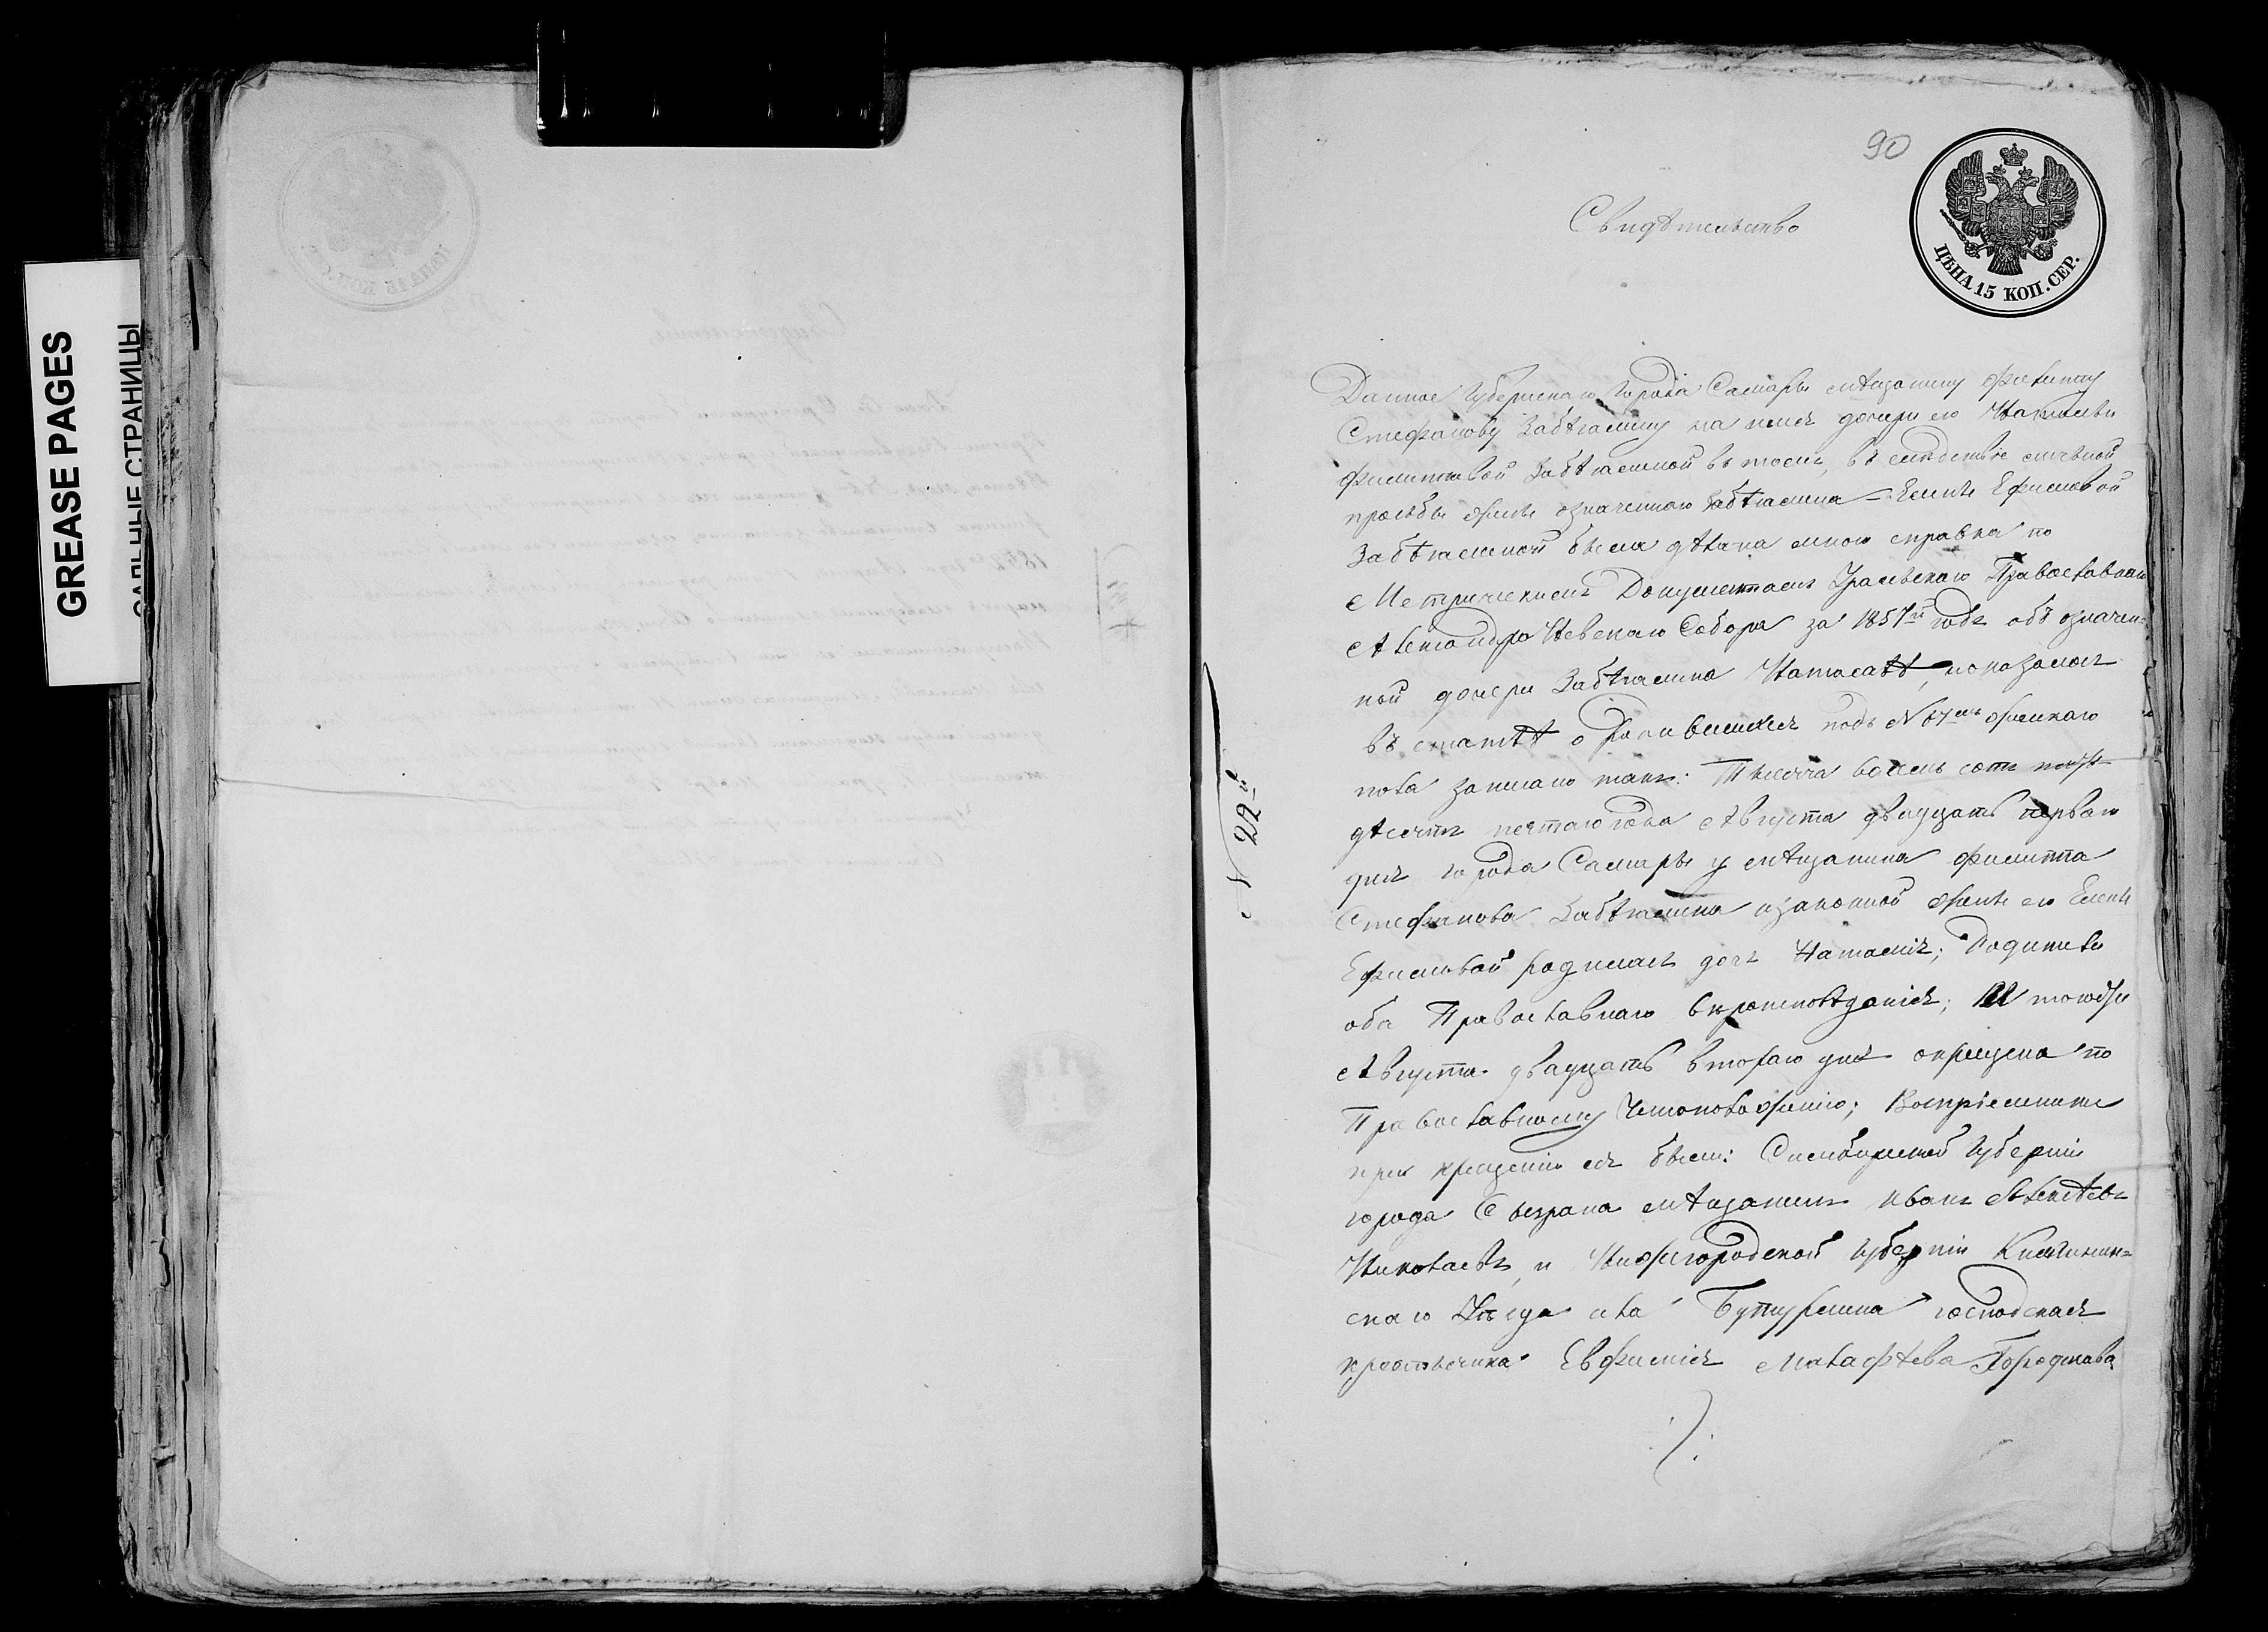 GREASE PAGES
САЛЬНЫЕ СТРАНИЦЫ
90
ЦѢНА 15 КОП. СЕР.
Свидѣтельство
№ 22й.
Данное Губернскаго города Самары мѣщанину Филиппу
Стефанову Забѣгалину на имя дочери его
Филипповой Забѣгалиной въ томъ, въ слѣдствіе личной
прозьбы жены означеннаго Забѣгалина – Елены Ефимовой
Забѣгалиной была дѣлана мною справка по
Метрическимъ Документамъ Уральскаго Православнаго
Александро Невскаго Собора за 1857й годъ объ означен=
ной дочери Забѣгалина Наталіѣ, показалось
въ статьѣ о родившихся подъ № 67мъ женскаго
пола записано такъ: Тысяча восемь сотъ пять
десятъ пятаго года Августа двадцать перваго
дня города Самары у мѣщанина Филиппа
Стефанова Забѣгалина изаконной жены его Елены
Ефимовой родилась дочь Наталія; Родители
оба Православнаго вѣроисповѣданія; И тогоже
Августа двадцать втораго дня окрещена по
Православному Чиноположенію; Воспріемники
при крещеніи ея были: Симбирской Губерніи
города Сызрана мѣщанинъ Иванъ Алексѣевъ
Николаевъ, и Нижегородской Губерніи Княгинин=
скаго Уѣзда села Бутурлина господская
крестьянка Евфимія Малафѣева